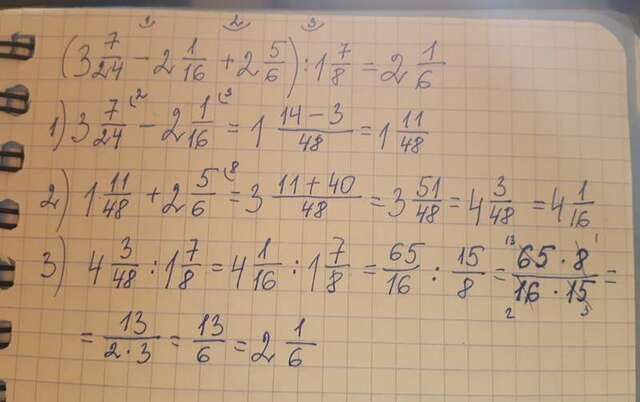 1 2 3
(3 7/24 − 2 1/16 + 2 5/6) : 1 7/8 = 2 1/6
1) 3 7/24 (2 − 2 1/16 (3 = 1 14−3/48 = 1 11/48
2) 1 11/48 + 2 5/6 (8 = 3 11+40/48 = 3 51/48 = 4 3/48 = 4 1/16
3) 4 3/48 : 1 7/8 = 4 1/16 : 1 7/8 = 65/16 : 15/8 = 13 65·8 1/2 16·15 3 =
= 13/2·3 = 13/6 = 2 1/6